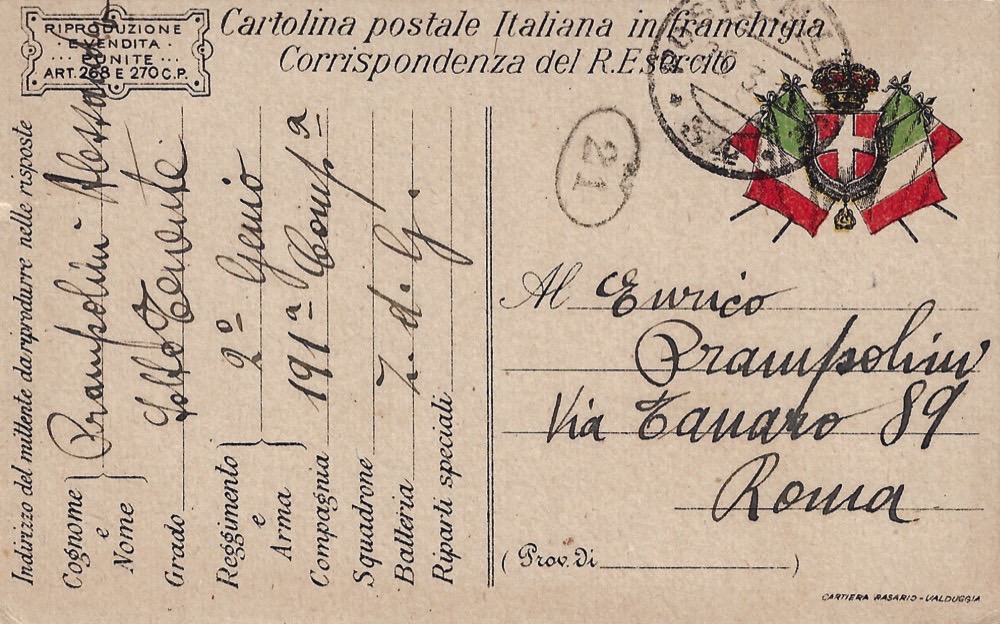 RIPRODUZIONE
E VENDITA
PUNITE
ART. 268 E 270 C.P.
Cartolina postale Italiana in franchigia
Corrispondenza del R. Esercito
21
Indirizzo del mittente da riprodurre nelle risposte
Cognome e Nome Prampolini Alessandro
Grado Sotto Tenente
Reggimento e Arma 2º Genio
Compagnia 191ª Compª
Squadrone
Batteria Z. d. G.
Riparti speciali
Al Enrico
Prampolini
Via Tanaro 89
Roma
(Prov. di )
CARTIERA RASARIO - VALDUGGIA